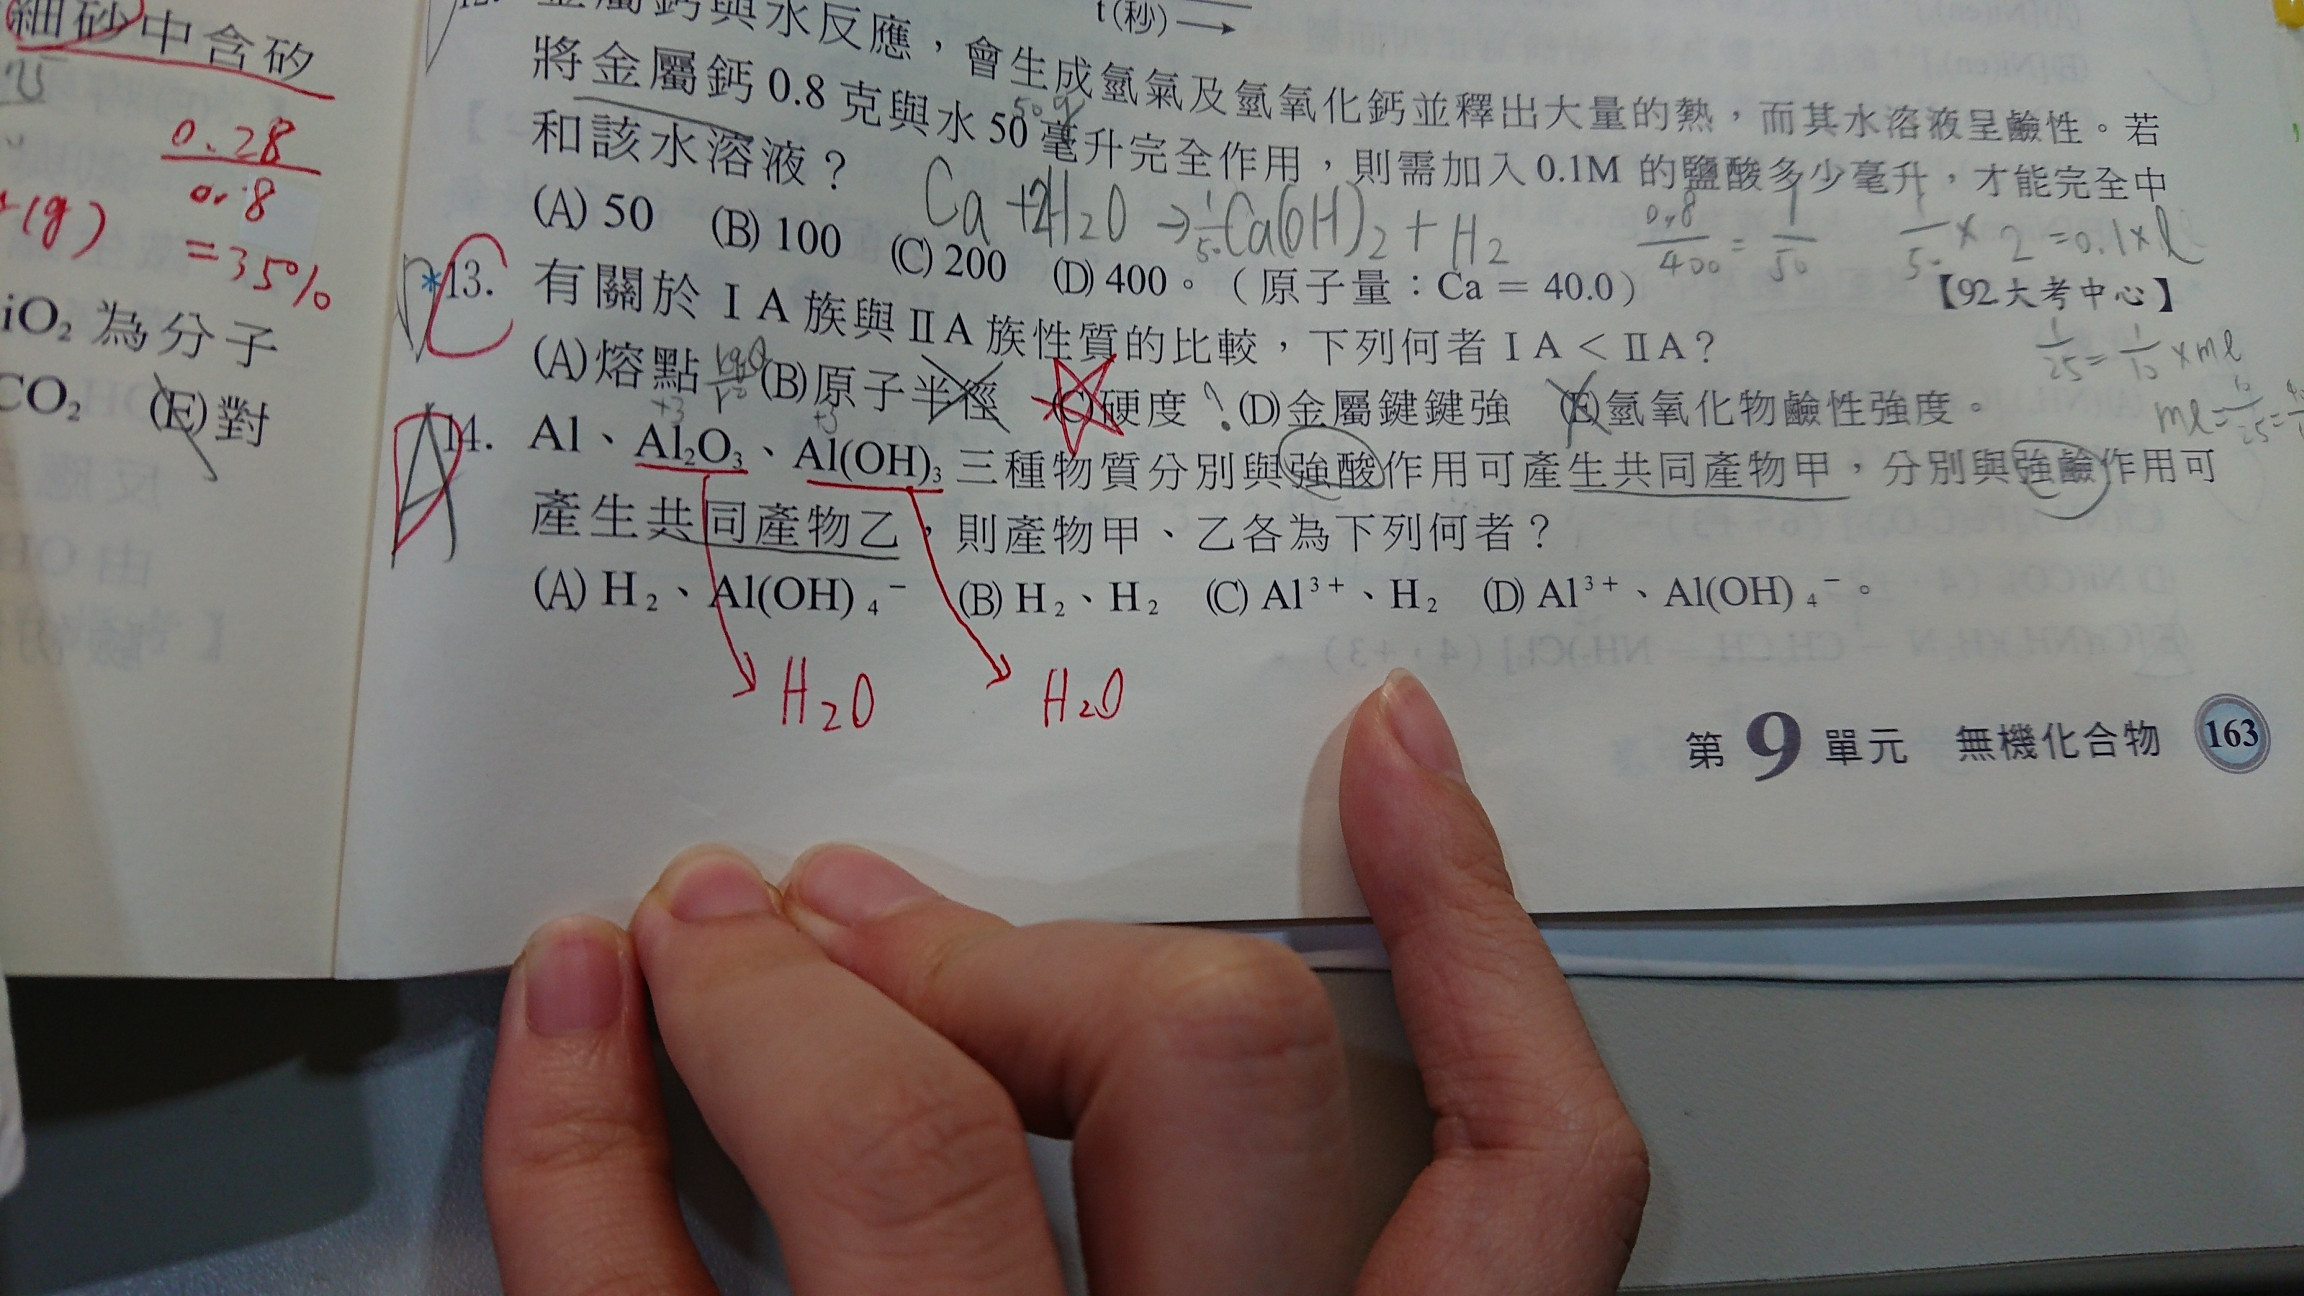 細砂中含矽
0.28
0.8
(g)
=35%
iO₂ 為分子
CO₂ (E)對
t(秒)
金屬鈣與水反應，會生成氫氣及氫氧化鈣並釋出大量的熱，而其水溶液呈鹼性。若
將金屬鈣 0.8 克與水 50 毫升完全作用，則需加入 0.1M 的鹽酸多少毫升，才能完全中
和該水溶液？
50g
Ca + 2H₂O → Ca(OH)₂ + H₂
1/50
0.8/400 = 1/50
1/50 × 2 = 0.1 × l
(A) 50 (B) 100 (C) 200 (D) 400。（原子量：Ca = 40.0） 【92.大考中心】
1/25 = 1/10 × ml
*13. 有關於ⅠA 族與ⅡA 族性質的比較，下列何者ⅠA＜ⅡA？
(A)熔點 (B)原子半徑 (C)硬度 ? (D)金屬鍵鍵強 (E)氫氧化物鹼性強度。
+3 +3
A
14. Al、Al₂O₃、Al(OH)₃ 三種物質分別與強酸作用可產生共同產物甲，分別與強鹼作用可
產生共同產物乙，則產物甲、乙各為下列何者？
(A) H₂、Al(OH)₄⁻ (B) H₂、H₂ (C) Al³⁺、H₂ (D) Al³⁺、Al(OH)₄⁻。
H₂O H₂O
第 9 單元 無機化合物 163